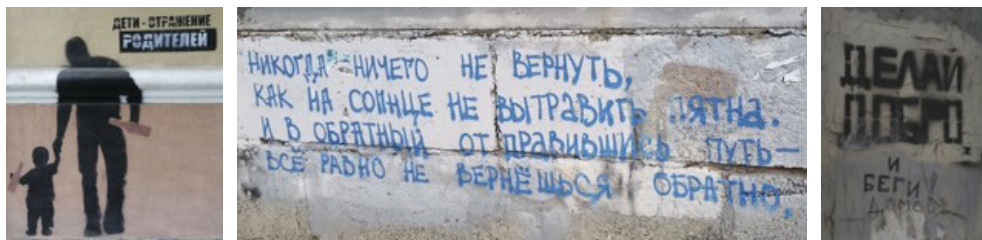 ДЕТИ - ОТРАЖЕНИЕ
РОДИТЕЛЕЙ
НИКОГДА НИЧЕГО НЕ ВЕРНУТЬ,
КАК НА СОЛНЦЕ НЕ ВЫТРАВИТЬ ПЯТНА.
И В ОБРАТНЫЙ ОТПРАВИВШИСЬ ПУТЬ—
ВСЁ РАВНО НЕ ВЕРНЁШЬСЯ ОБРАТНО.
ДЕЛАЙ
ДОБРО
И
БЕГИ
ДОМОЙ